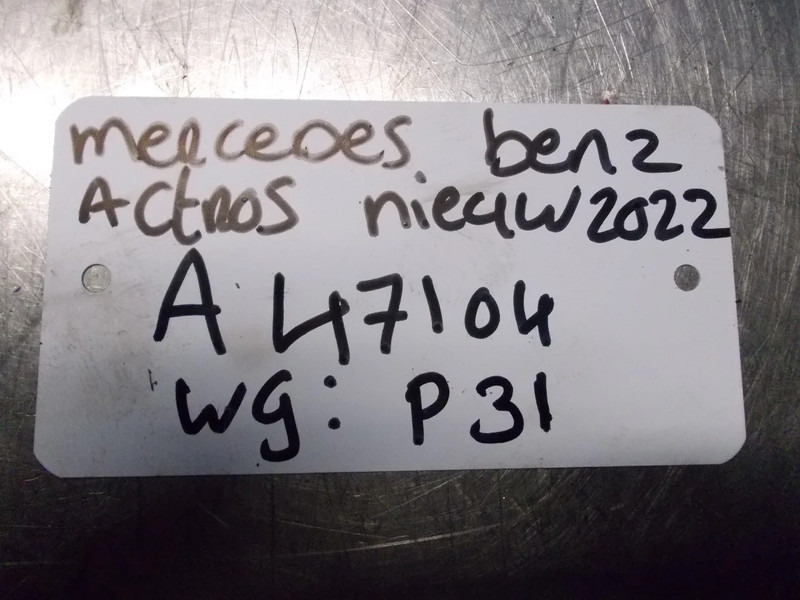 mercedes benz
Actros nieuw 2022
A 47104
wg: P31